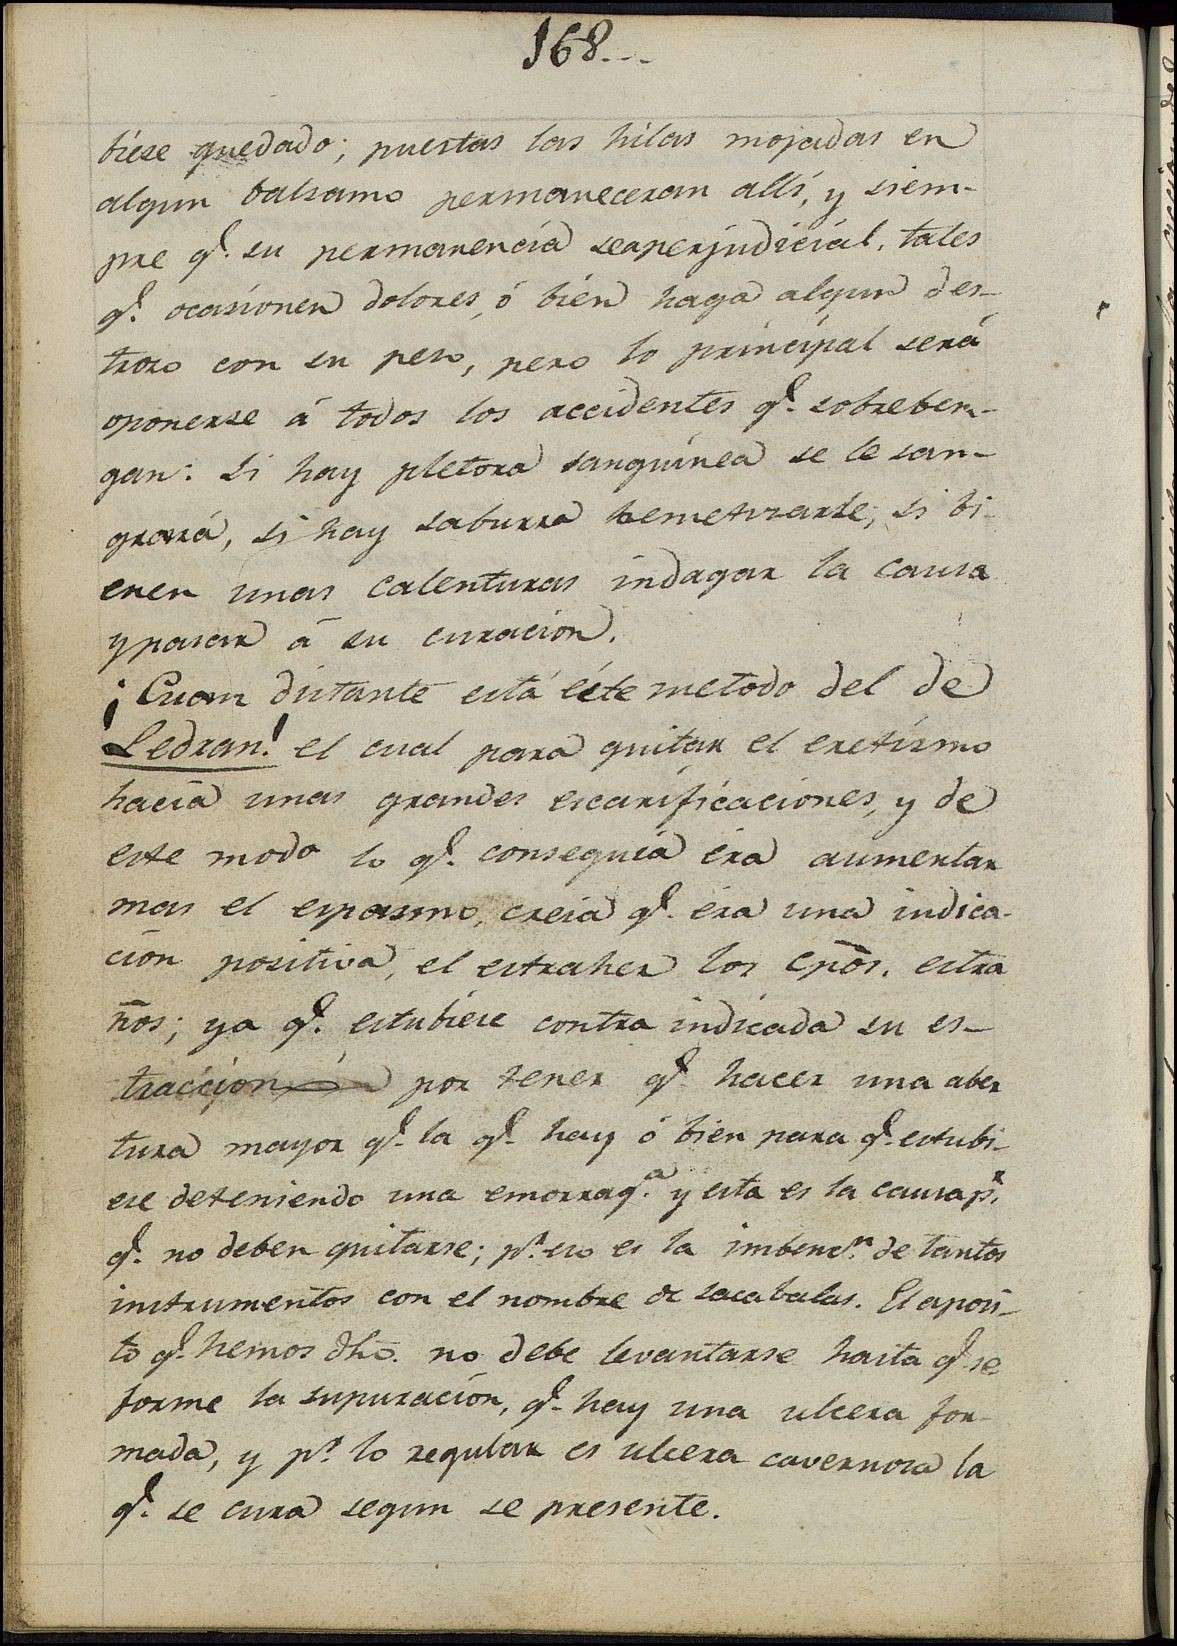 168...
biese quedado; puestas las hilas mojadas en
algun balsamo permaneceran allí, y siem-
pre q.e su permanencia seaperjudicial, tales
q.e ocasionen dolores, ó bien haga algun des-
trozo con su peso, pero lo principal será
oponerse á todos los accidentes q.e sobreben-
gan: si hay pletora sanguinea se le san-
grará, si hay saburra hemetizarle; si bi-
enen unas calenturas indagar la causa
ypasar á su curacion.
¡Cuan distante está éste metodo del de
Ledran! el cual para quitar el eretismo
hacia unas grandes escarificaciones, y de
este modo lo q.e conseguia era aumentar
mas el espasmo, creia q.e era una indica-
cion positiva, el estraher los cpõs. estra
ños; ya q.e estubiese contra indicada su es-
traccion por tener q.e hacer una aber
tura mayor q.e la q.e hay ó bien para q.e estubi-
ese deteniendo una emorrag.a y esta es la causa p.r
q.e no deben quitarse; p.r eso es la imbenc.n de tantos
instrumentos con el nombre de sacabalas. El aposi-
to q.e hemos dho. no debe levantarse hasta q.e se
forme la supuracion, q.e hay una ulcera for-
mada, y p.r lo regular es ulcera cavernosa la
q.e se cura segun se presente.